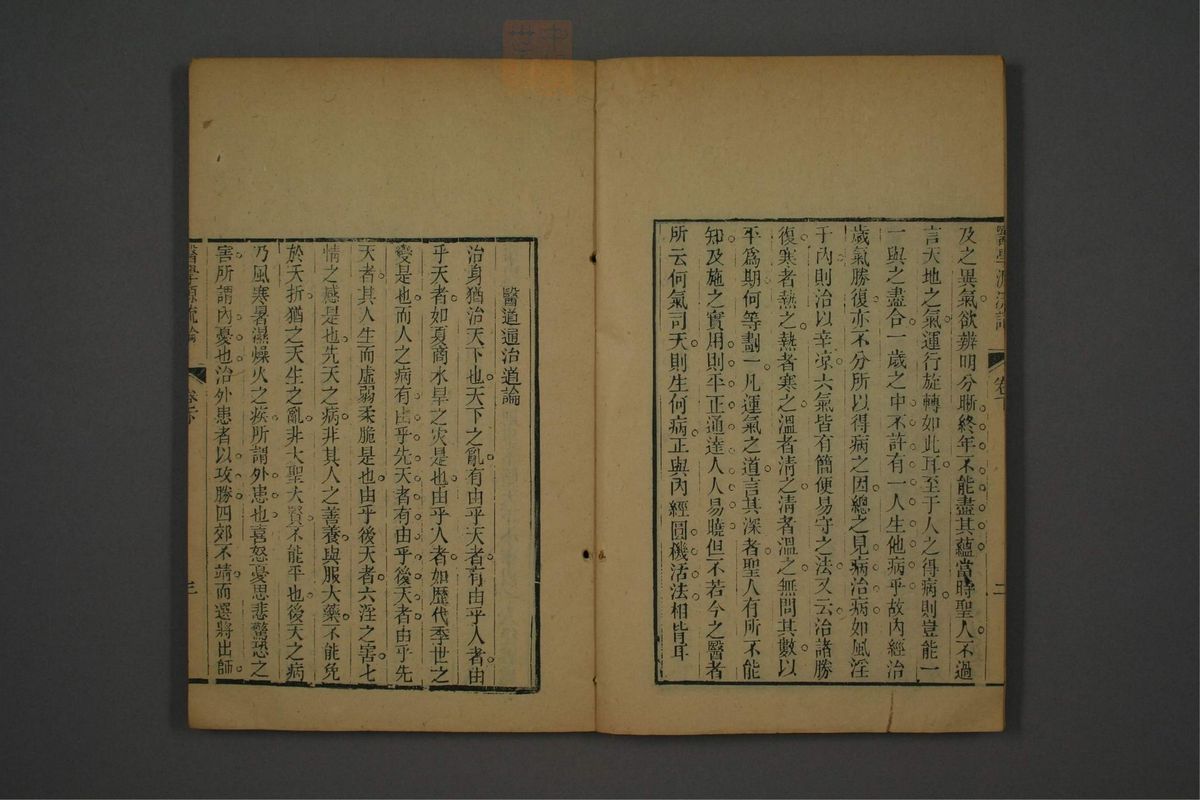 醫學源流論 卷下 二
及之異氣欲辨明分晰終年不能盡其蘊當時聖人不過
言天地之氣運行旋轉如此耳至于人之得病則豈能一
一與之盡合一歲之中不許有一人生他病乎故內經治
歲氣勝復亦不分所以得病之因總之見病治病如風淫
于內則治以辛涼六氣皆有簡便易守之法又云治諸勝
復寒者熱之熱者寒之溫者清之清者溫之無問其數以
平爲期何等劃一凡運氣之道言其深者聖人有所不能
知及施之實用則平正通達人人易曉但不若今之醫者
所云何氣司天則生何病正與內經圓機活法相背耳
醫道通治道論
治身猶治天下也天下之亂有由乎天者有由乎人者由
乎天者如夏商水旱之災是也由乎人者如歷代季世之
變是也而人之病有由乎先天者有由乎後天者由乎先
天者其人生而虛弱柔脆是也由乎後天者六淫之害七
情之感是也先天之病非其人之善養與服大藥不能免
於夭折猶之天生之亂非大聖大賢不能平也後天之病
乃風寒暑濕燥火之疾所謂外患也喜怒憂思悲驚恐之
害所謂內憂也治外患者以攻勝四郊不靖而選將出師
醫學源流論 卷下 三